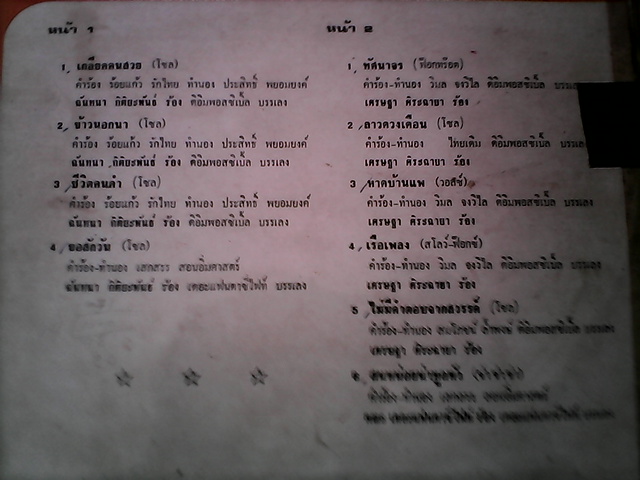 หน้า 1
1. เกลียดคนสวย (โซล)
คำร้อง ร้อยแก้ว รักไทย ทำนอง ประสิทธิ์ พยอมยงค์
ฉันทนา กิติยะพันธ์ ร้อง ดิอิมพอสซิเบิ้ล บรรเลง
2. ข้าวนอกนา (โซล)
คำร้อง ร้อยแก้ว รักไทย ทำนอง ประสิทธิ์ พยอมยงค์
ฉันทนา กิติยะพันธ์ ร้อง ดิอิมพอสซิเบิ้ล บรรเลง
3 ชีวิตคนดำ (โซล)
คำร้อง ร้อยแก้ว รักไทย ทำนอง ประสิทธิ์ พยอมยงค์
ฉันทนา กิติยะพันธ์ ร้อง ดิอิมพอสซิเบิ้ล บรรเลง
4 ขอสักวัน (โซล)
คำร้อง-ทำนอง เสกสรร สอนอิ่มศาสตร์
ฉันทนา กิติยะพันธ์ ร้อง เดอะแฟนตาซีไฟท์ บรรเลง
หน้า 2
1. ทัศนาจร (ฟ็อกทร็อต)
คำร้อง-ทำนอง วิมล จงวิไล ดิอิมพอสซิเบิ้ล
เศรษฐา ศิระฉายา ร้อง
2 ลาวดวงเดือน (โซล)
คำร้อง-ทำนอง ไทยเดิม ดิอิมพอสซิเบิ้ล
เศรษฐา ศิระฉายา ร้อง
3 หาดบ้านแพ (วอลซ์)
คำร้อง-ทำนอง วิมล จงวิไล ดิอิมพอสซิเบิ้ล บรรเลง
เศรษฐา ศิระฉายา ร้อง
4 เรือเพลง (สโลว์-ฟ็อกซ์)
คำร้อง-ทำนอง วิมล จงวิไล ดิอิมพอสซิเบิ้ล บรรเลง
เศรษฐา ศิระฉายา ร้อง
5 ไม่มีคำตอบจากสวรรค์ (โซล)
คำร้อง-ทำนอง ดิอิมพอสซิเบิ้ล บรรเลง
เศรษฐา ศิระฉายา ร้อง
6
คำร้อง ทำนอง